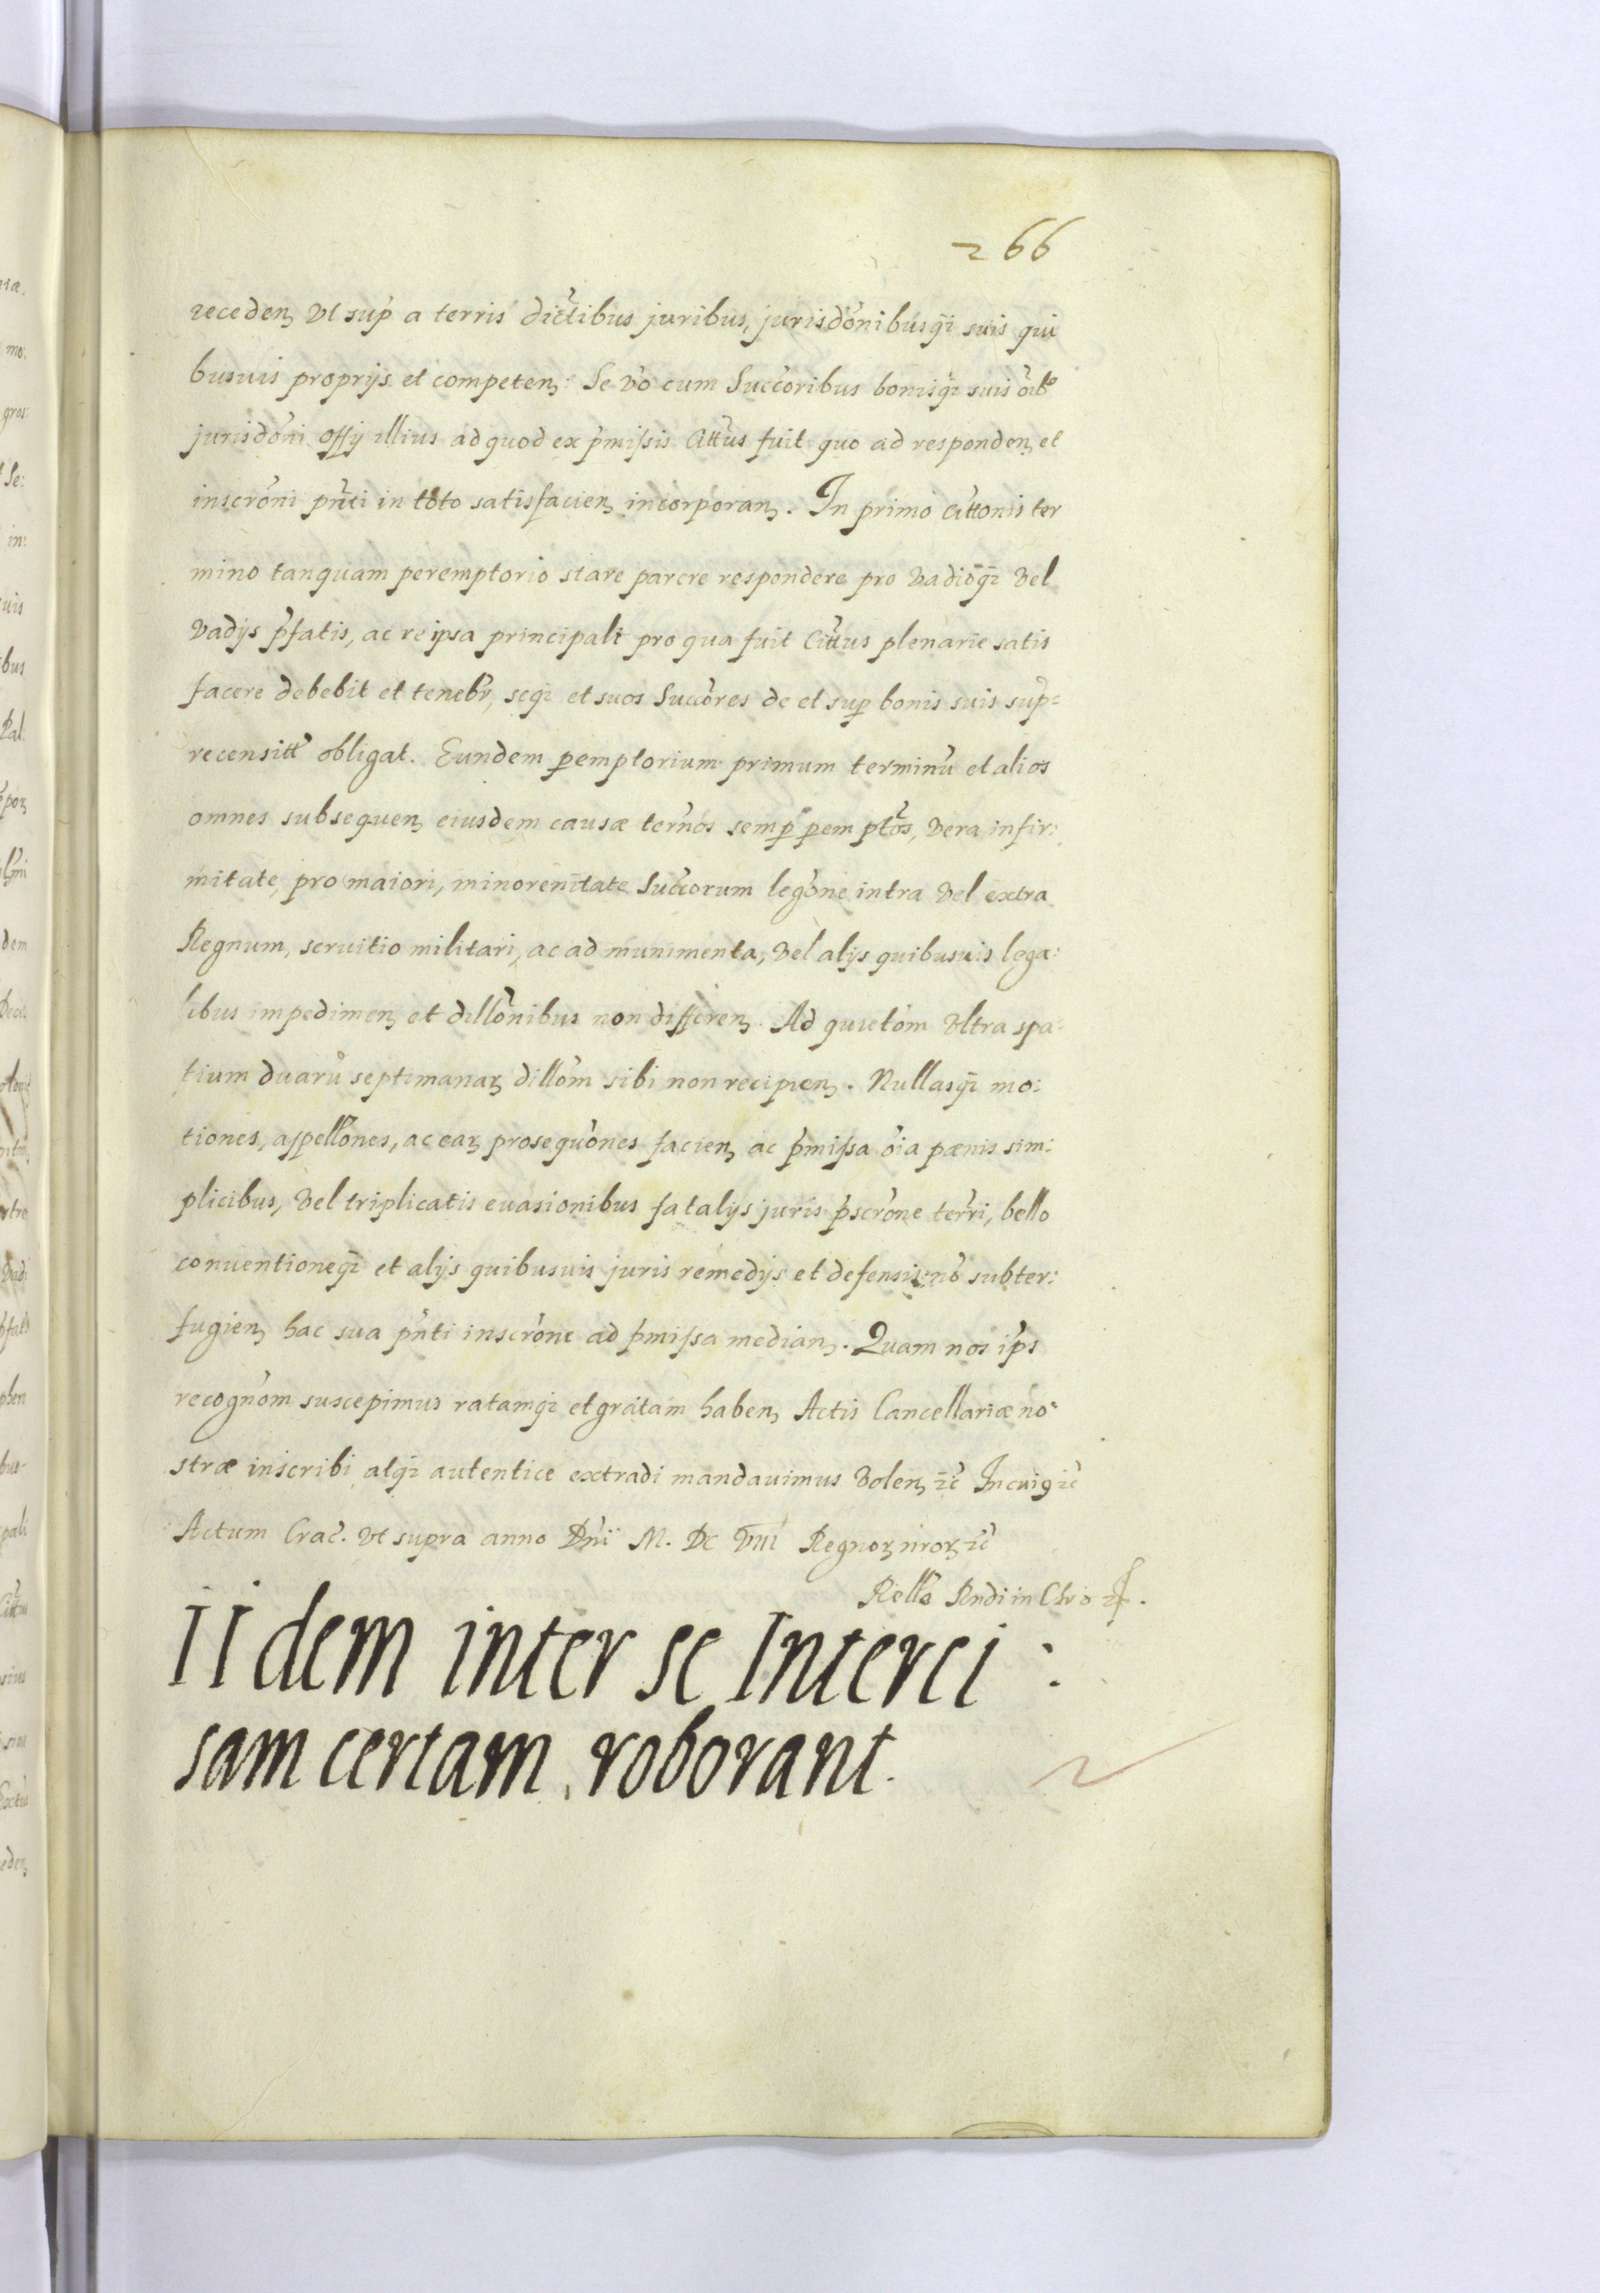 266
recedenʒ ut sup̃ a terris dictĩbus juribus, jurisdõnibusq̃ suis qui
busvis proprijs et competenʒ: Se võ cum Succõribus bonisq̃ suis õibꝰ
jurisdõni offij illius ad quod ex p̃missis Cittũs fuit quo ad respondenʒ et
inscrõni pñti in toto satisfacienʒ incorporanʒ. In primo cittõnis ter
mino tanquam peremptorio stare parere respondere pro vadioq̃ vel
vadijs p̃fatis, ac re ipsa principali pro qua fuit Cittũs plenarie satis
facere debebit et tenebr̃, seq̃ et suos Succõres de et suꝑ bonis suis sup̃=
recensitt̃ obligat. Eundem ꝑemptorium primum terminũ et alios
omnes subsequenʒ eiusdem causæ term̃os semꝑ ꝑemptõs, vera infir:
mitate, pro maiori, minorenitate Succõrum legõne intra vel extra
Regnum, servitio militari, ac ad munimenta, vel alijs quibusvis lega:
libus impedimenʒ et dillõnibus non differenʒ. Ad quietõm ultra spa:
tium duarũ septimanaꝝ dillõm sibi non recipienʒ. Nullasq̃ mo:
tiones, appellõnes, ac eaꝝ prosequõnes facienʒ ac p̃missa õia pænis sim:
plicibus, vel triplicatis evasionibus fatalijs juris p̃scrõne terr̃i, bello
conventioneq̃ et alijs quibusvis juris remedijs et defensiõnõ subter:
fugienʒ hac sua pñti inscrõne ad p̃missa medianʒ. Quam nos ip̃s
recognõm suscepimus ratamq̃ et gratam habenʒ Actis Cancellariæ no:
stræ inscribi, atq̃ autentice extradi mandavimus Volenʒ ꝛc̃ In cuiꝰ ꝛc̃
Actum Crac̃. ut supra anno Dñi M. DC VIII Regnoꝝ nroꝝ ꝛc̃
Rell̃o Rñdi in Chr̃o ꝛc.
IIdem inter se Interci:
sam certam roborant.